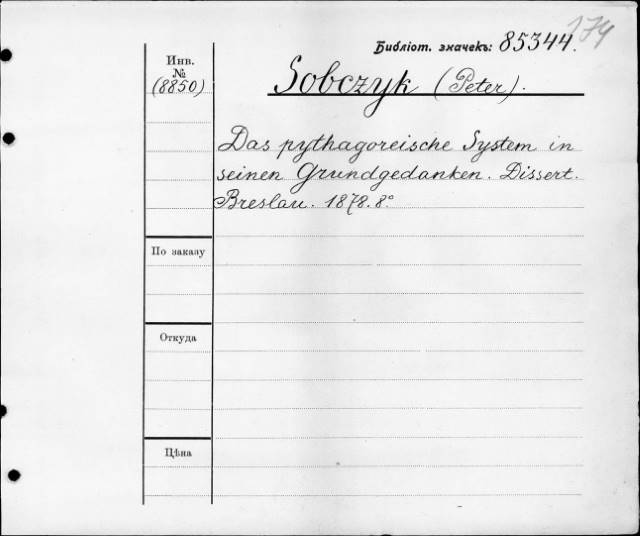 174
Библiот. значекъ: 85344.
Инв.
№
(8850)
Sobczyk (Peter).
Das pythagoreische System in
seinen Grundgedanken. Dissert.
Breslau. 1878. 8°
По заказу
Откуда
Цѣна